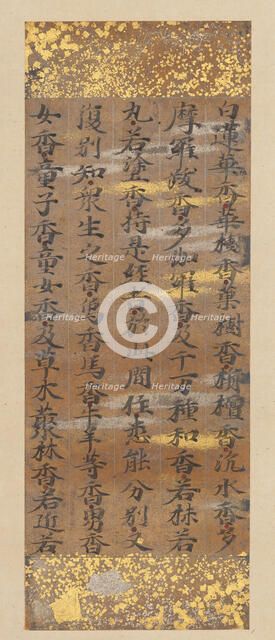 白蓮華香華樹香菓樹香栴檀香沉水香多
摩羅跋香多羅香及千万種和香若抹若
丸若塗香持是経者於此間住悉能分別又
復別知衆生之香象香馬香牛羊等香男香
女香童子香童女香及草木藂林香若近若
Heritage
Heritage
Heritage
Heritage
Heritage
Heritage
C